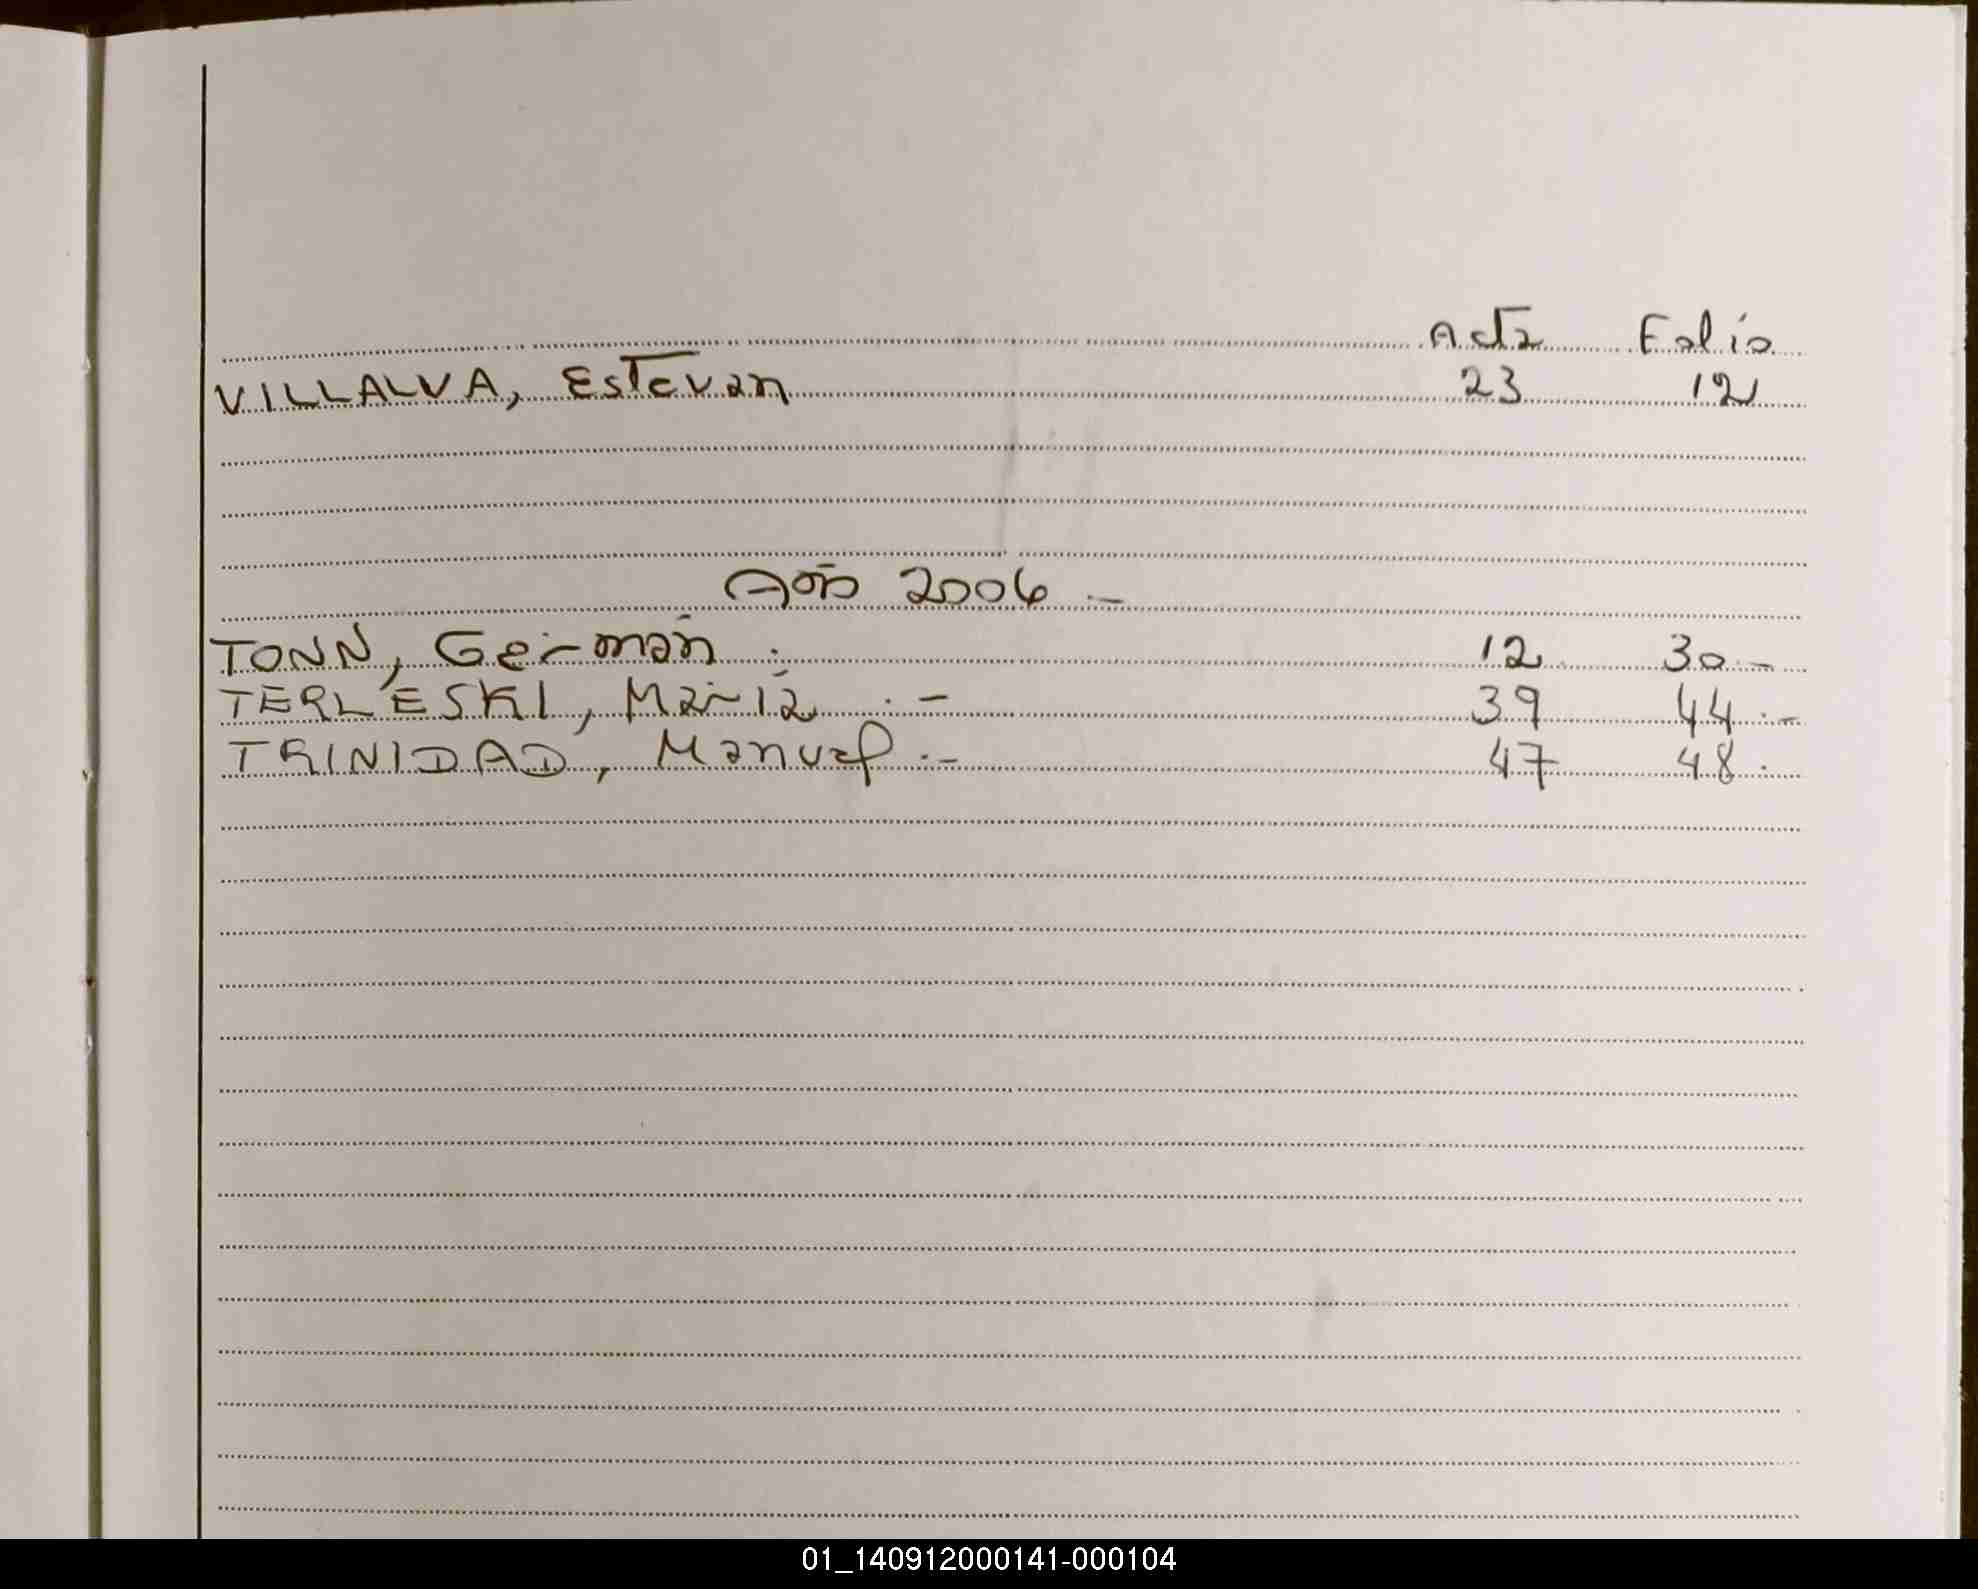 Acta Folio
VILLALVA, Estevan 23 12
Año 2006 -
TONN, Germán . 12 30 -
TERLESKI, María . - 39 44 . -
TRINIDAD, Manuel . - 47 48 .
01_140912000141-000104